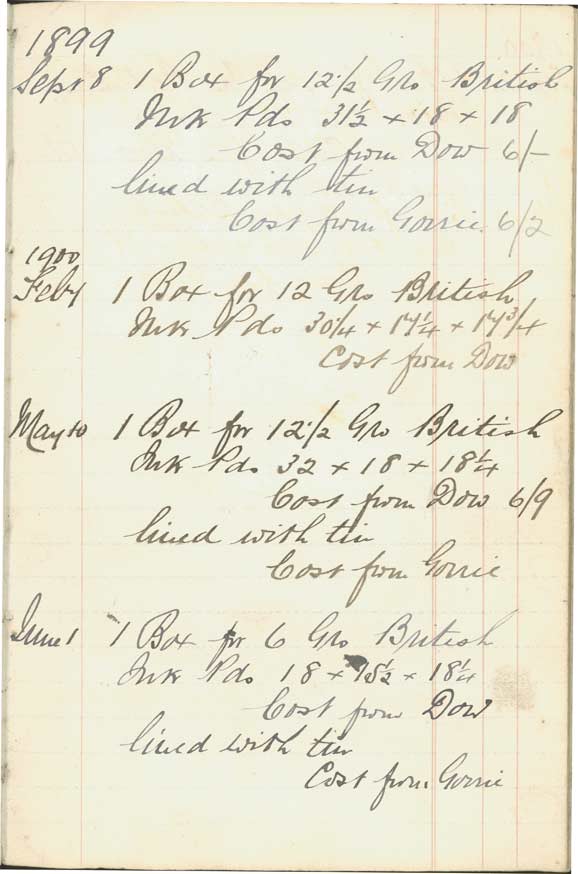 1899
Sept 8 1 Box for 12 1/2 Gro British
Ink Pds 31 1/2 × 18 × 18
Cost from Dow 6/-
lined with tin
Cost from Gorrie 6/2
1900
Feby 1 Box for 12 Gro British
Ink Pds 30 1/4 × 17 1/4 × 17 3/4
Cost from Dow
May 10 1 Box for 12 1/2 Gro British
Ink Pds 32 × 18 × 18 1/4
Cost from Dow 6/9
lined with tin
Cost from Gorrie
June 1 1 Box for 6 Gro British
Ink Pds 18 × 15 1/2 × 18 1/4
Cost from Dow
lined with tin
Cost from Gorrie